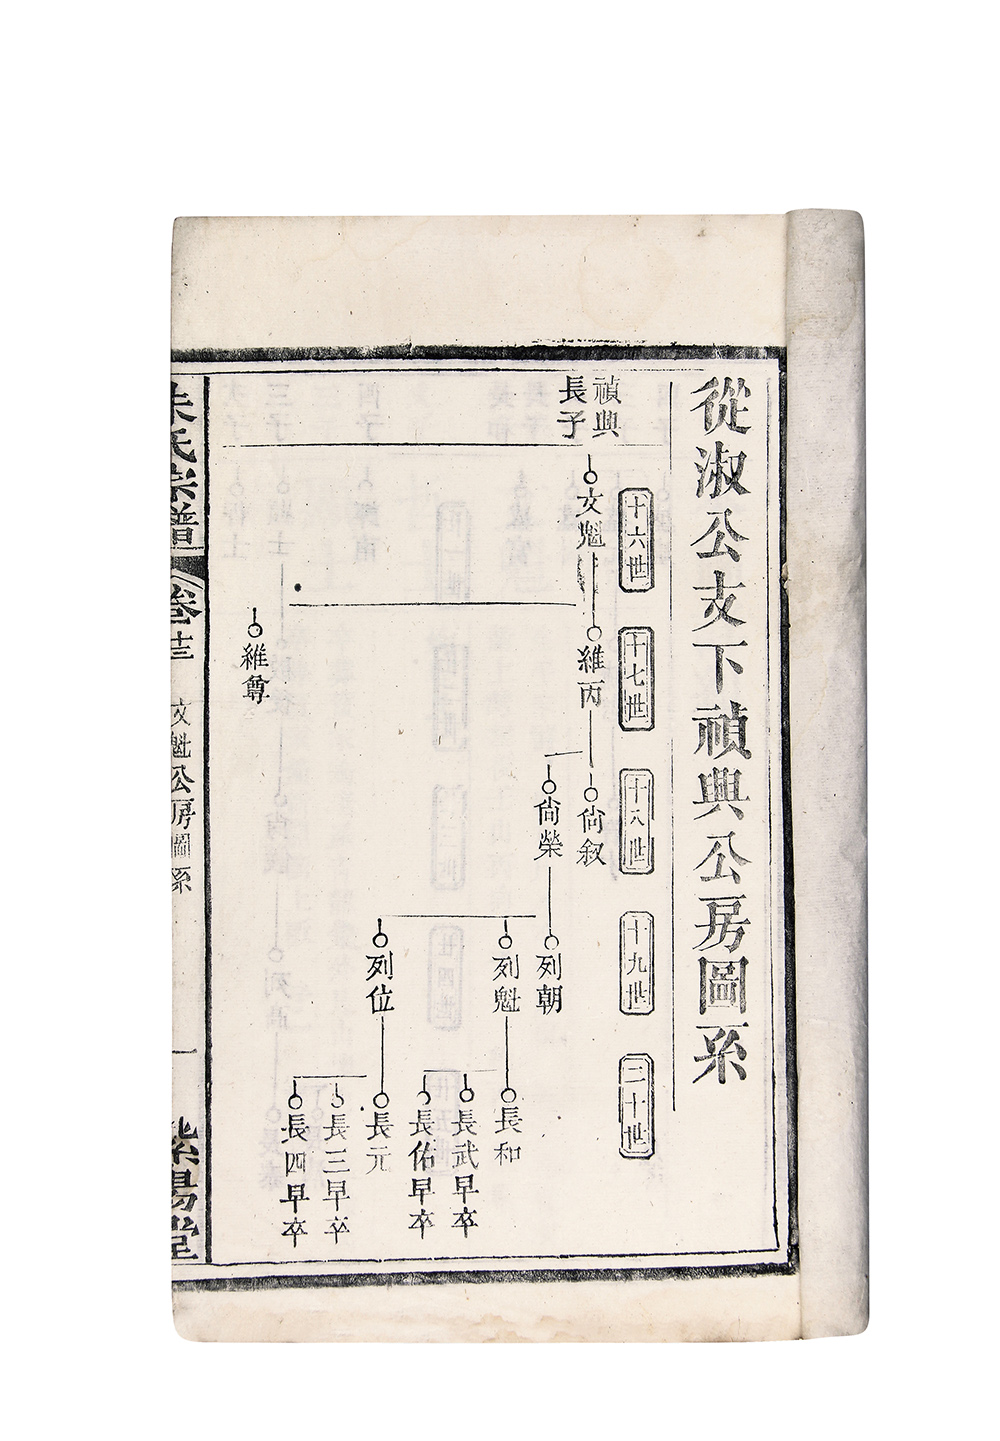 從淑公支下禎興公房圖系
十六世
十七世
十八世
十九世
二十世
禎興
長子
文魁
維丙
尙叙
尙榮
列朝
列魁
長和
長武早卒
長佑早卒
列位
長元
長三早卒
長四早卒
維尊
朱氏宗譜
卷十三
文魁公房圖系
一
紫陽堂